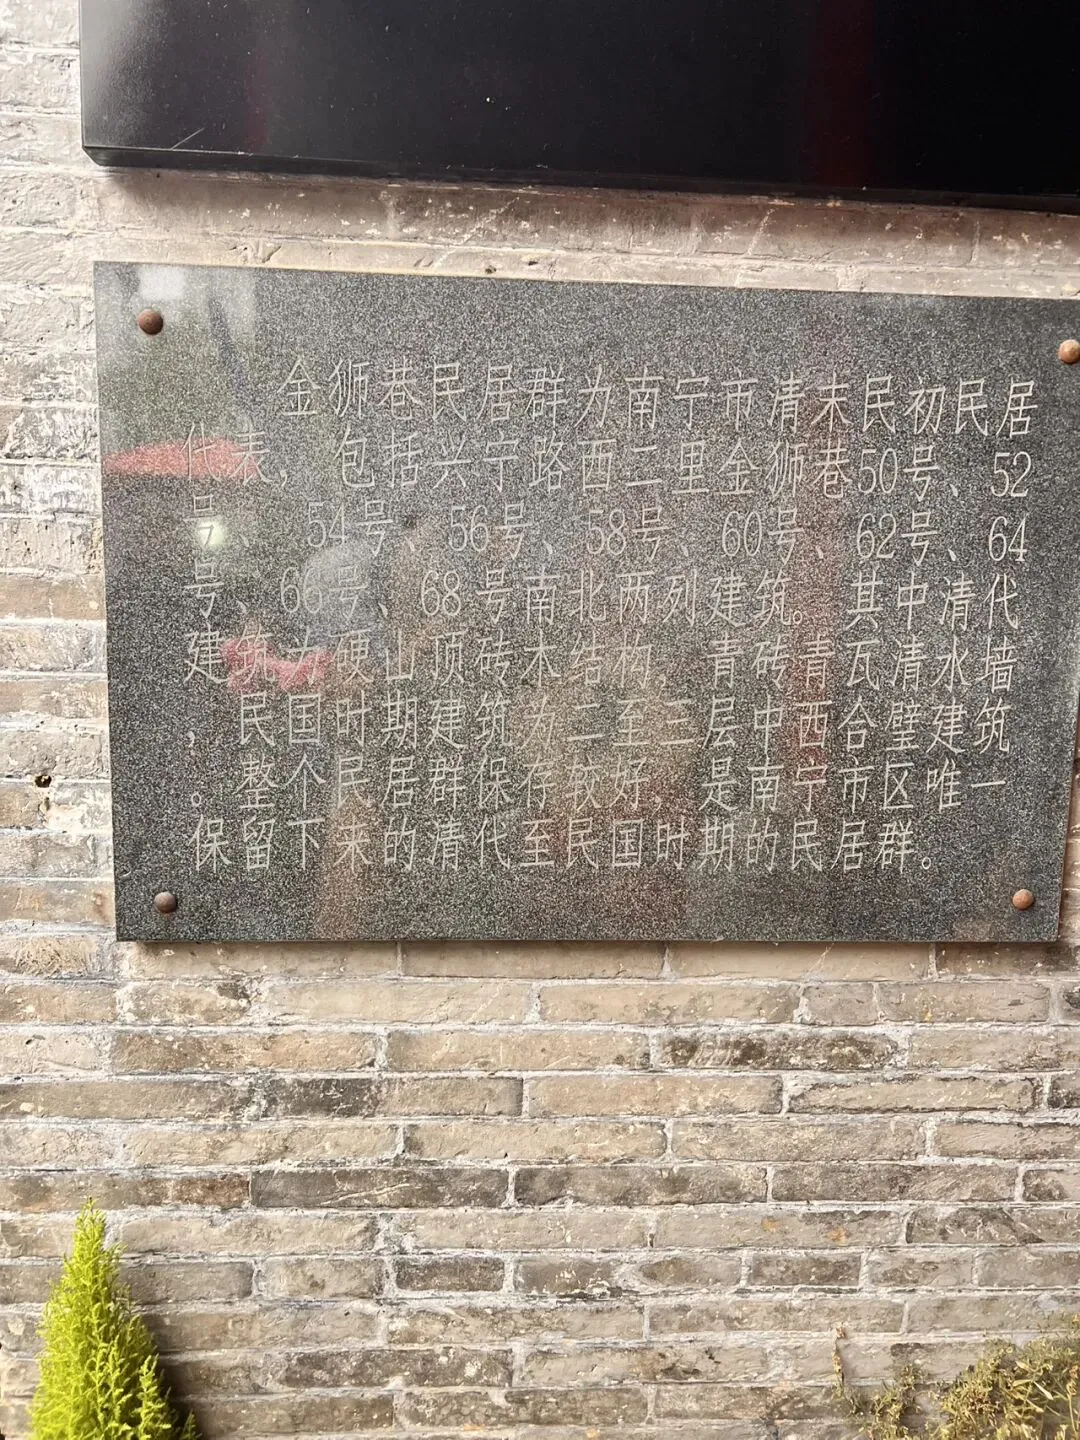 金狮巷民居群为南宁市清末民初民居
代表，包括兴宁路西二里金狮巷50号、52
号、54号、56号、58号、60号、62号、64
号、66号、68号南北两列建筑。其中清代
建筑为硬山顶砖木结构，青砖青瓦清水墙
，民国时期建筑为二至三层中西合璧建筑
。整个民居群保存较好，是南宁市区唯一
保留下来的清代至民国时期的民居群。